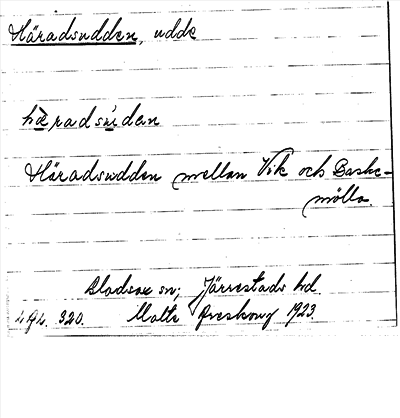 Häradsudden, udde
hæradsúdan
Häradsudden mellan Vik och Baske-
mölla.
Gladsax sn; Järrestads hd.
320. Malte 1923.